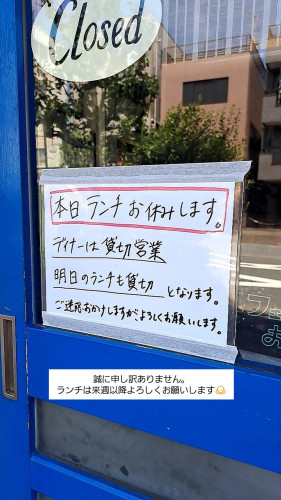 Closed
本日 ランチ お休みします。
ディナーは 貸切営業
明日のランチも貸切 となります。
ご迷惑おかけしますが、よろしくお願いします。
フェ
お
誠に申し訳ありません。
ランチは来週以降よろしくお願いします🙇